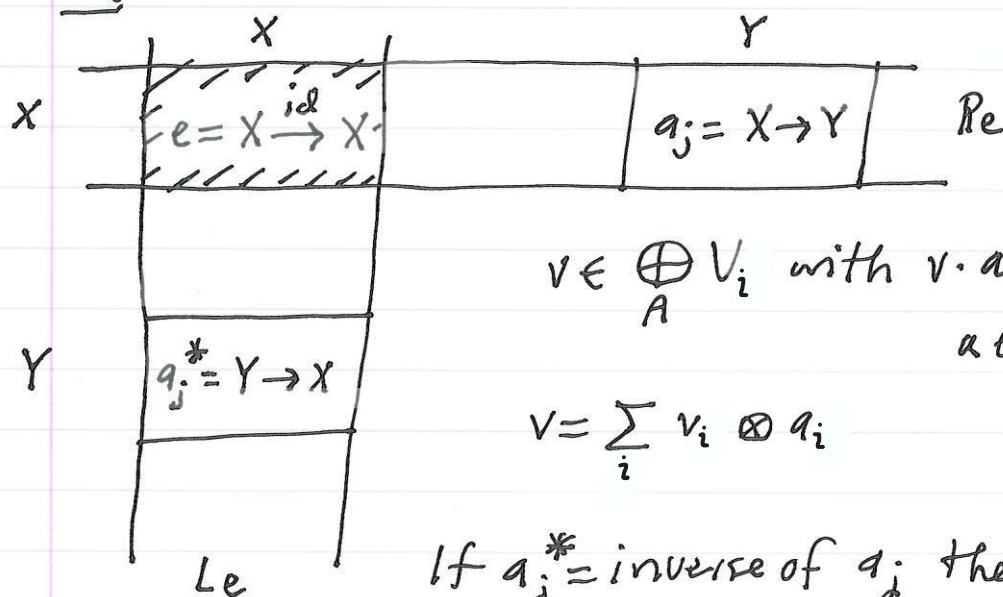 X Y
X e = X id→ X a_j = X → Y Re
v ∈ ⊕_A V_i with v. a
at
Y a_j^* = Y → X
v = ∑_i v_i ⊗ a_i
Le If a_j^* = inverse of a_j the